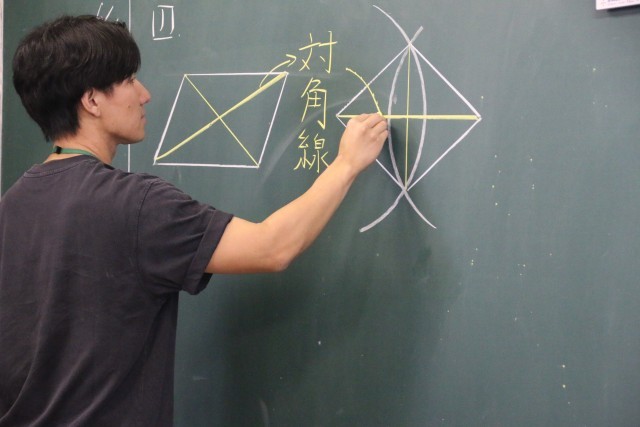 四
対角線